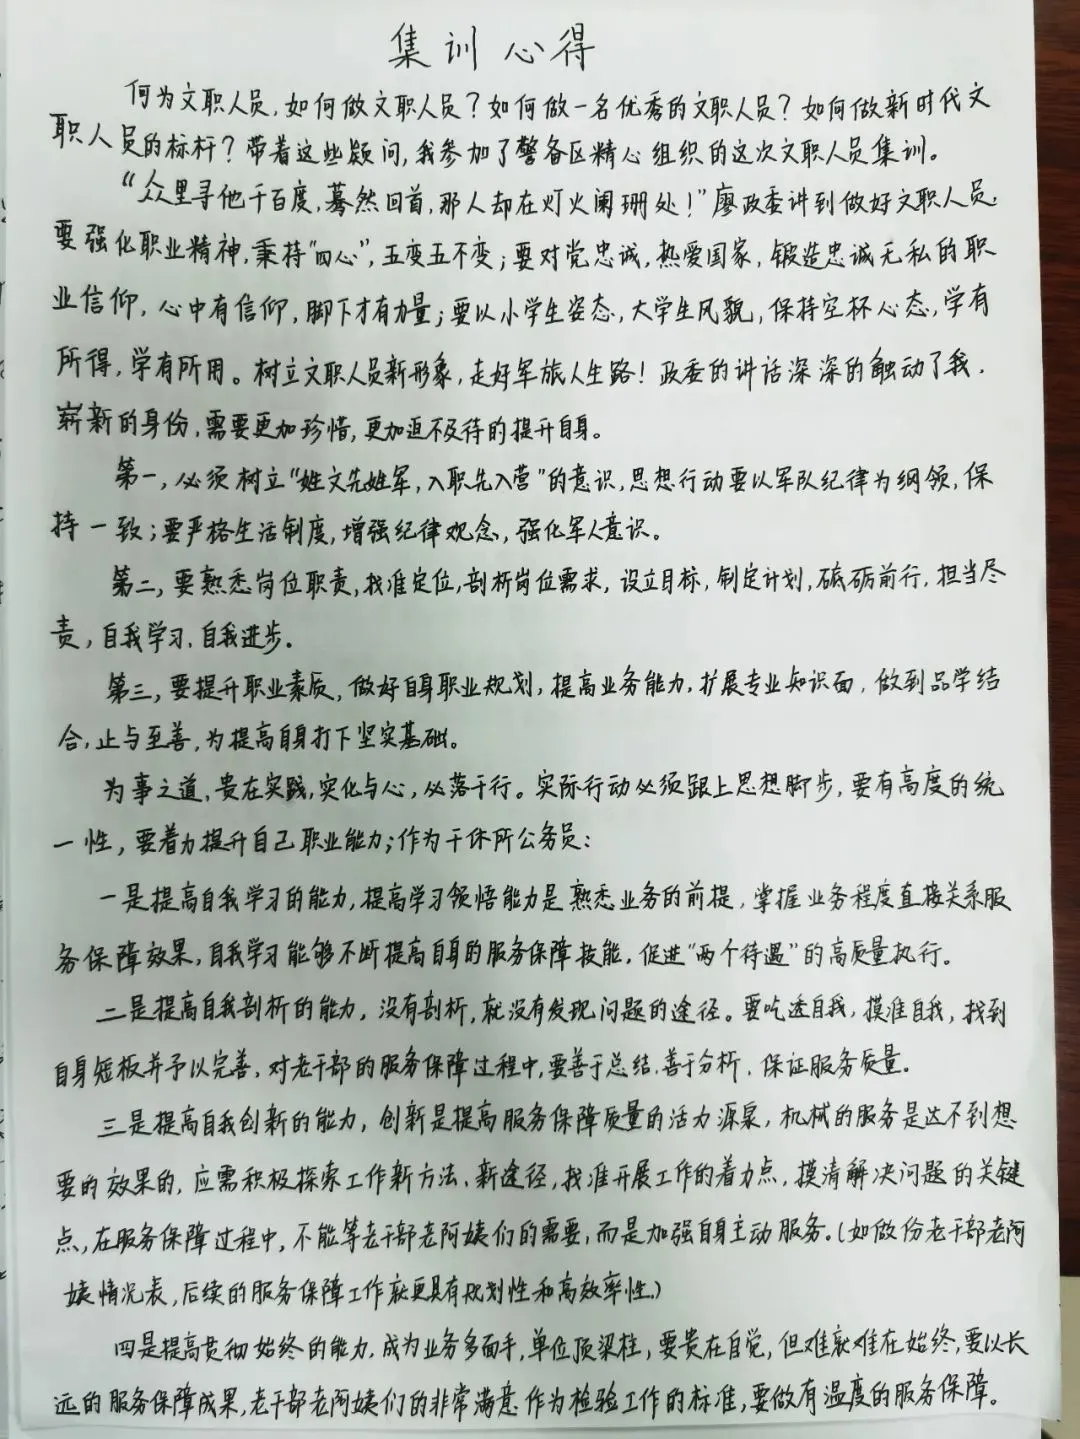 集训心得
何为文职人员，如何做文职人员？如何做一名优秀的文职人员？如何做新时代文
职人员的标杆？带着这些疑问，我参加了警备区精心组织的这次文职人员集训。
“众里寻他千百度，蓦然回首，那人却在灯火阑珊处！”廖政委讲到做好文职人员，
要强化职业精神，秉持“四心”，五变五不变；要对党忠诚，热爱国家，锻造忠诚无私的职
业信仰，心中有信仰，脚下才有力量；要以小学生姿态，大学生风貌，保持空杯心态，学有
所得，学有所用。树立文职人员新形象，走好军旅人生路！政委的讲话深深的触动了我，
崭新的身份，需要更加珍惜，更加迫不及待的提升自身。
第一，必须树立“姓文先姓军，入职先入营”的意识，思想行动要以军队纪律为纲领，保
持一致；要严格生活制度，增强纪律观念，强化军人意识。
第二，要熟悉岗位职责，找准定位，剖析岗位需求，设立目标，制定计划，砥砺前行，担当尽
责，自我学习，自我进步。
第三，要提升职业素质，做好自身职业规划，提高业务能力，扩展专业知识面，做到品学结
合，止与至善，为提高自身打下坚实基础。
为事之道，贵在实践，实化与心，必落于行。实际行动必须跟上思想脚步，要有高度的统
一性，要着力提升自己职业能力；作为干休所公务员：
一是提高自我学习的能力，提高学习领悟能力是熟悉业务的前提，掌握业务程度直接关系服
务保障效果，自我学习能够不断提高自身的服务保障技能，促进“两个待遇”的高质量执行。
二是提高自我剖析的能力，没有剖析，就没有发现问题的途径。要吃透自我，摸准自我，找到
自身短板并予以完善，对老干部的服务保障过程中，要善于总结，善于分析，保证服务质量。
三是提高自我创新的能力，创新是提高服务保障质量的活力源泉，机械的服务是达不到想
要的效果的，应需积极探索工作新方法、新途径，找准开展工作的着力点，摸清解决问题的关键
点，在服务保障过程中，不能等老干部老阿姨们的需要，而是加强自身主动服务。（如做份老干部老阿
姨情况表，后续的服务保障工作就更具有规划性和高效率性。）
四是提高贯彻始终的能力，成为业务多面手，单位顶梁柱，要贵在自觉，但难就难在始终，要以长
远的服务保障成果，老干部老阿姨们的非常满意作为检验工作的标准，要做有温度的服务保障。